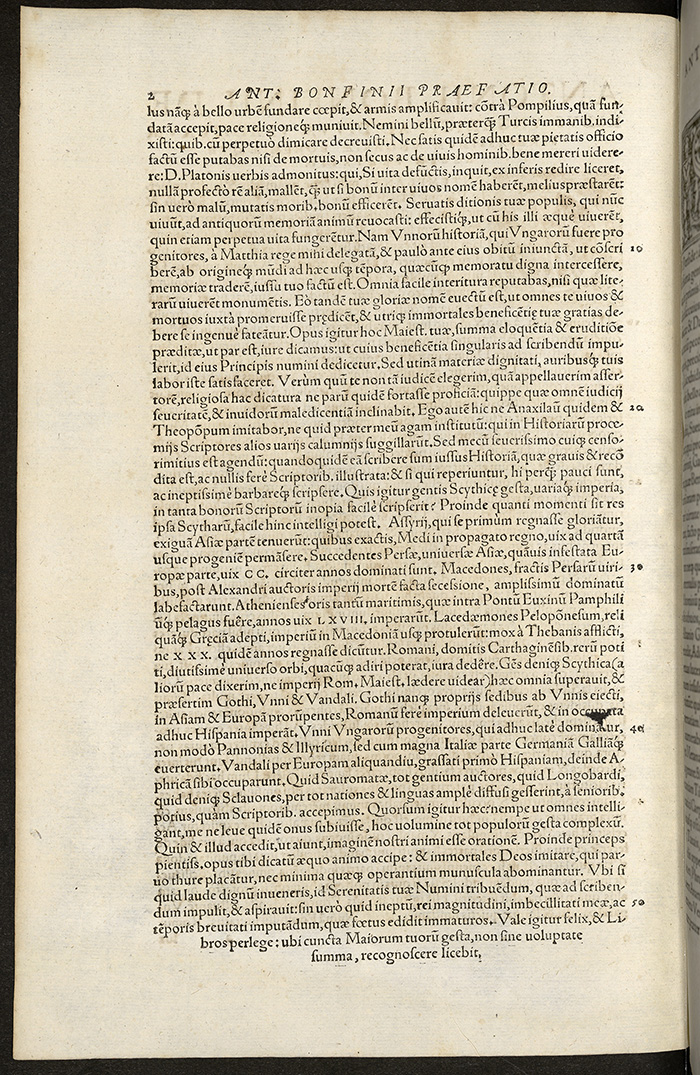 2 ANT: BONFINII PRAEFATIO.
lus nāq; à bello urbē fundare cœpit, & armis amplificauit: cōtrà Pompilius, quā fun-
datā accepit, pace religioneq; muniuit. Nemini bellū, præterq̃ Turcis immanib. indi-
xisti: quib. cū perpetuò dimicare decreuisti. Nec satis quidē adhuc tuæ pietatis officio
factū esse putabas nisi de mortuis, non secus ac de uiuis hominib. bene mereri uidere-
re: D. Platonis uerbis admonitus: qui, Si uita defūctis, inquit, ex inferis redire liceret,
nullā profectò rē aliā, mallēt, q̃ ut si bonū inter uiuos nomē haberēt, melius præstarēt:
sin uerò malū, mutatis morib. bonū efficerēt. Seruatis ditionis tuæ populis, qui nūc
uiuūt, ad antiquorū memoriā animū reuocasti: effecistiq; ut cū his illi æquè uiuerēt,
quin etiam perpetua uita fungerētur. Nam Vnnorū historiā, qui Vngarorū fuere pro
genitores, à Matthia rege mihi delegatā, & paulò ante eius obitū iniunctā, ut cōscri 10
berē, ab origineq; mūdi ad hæc usq; tēpora, quæcūq; memoratu digna intercessere,
memoriæ traderē, iussu tuo factū est. Omnia facile interitura reputabas, nisi quæ lite-
rarū uiuerēt monumētis. Eò tandē tuæ gloriæ nomē euectū est, ut omnes te uiuos &
mortuos iuxtà promeruisse prędicēt, & utriq; immortales beneficētię tuæ gratias de-
bere se ingenuè fateātur. Opus igitur hoc Maiest. tuæ, summa eloquētia & eruditiōe
præditæ, ut par est, iure dicamus: ut cuius beneficētia singularis ad scribendū impu-
lerit, id eius Principis numini dedicetur. Sed utinā materiæ dignitati, auribusq; tuis
labor iste satisfaceret. Verùm quū te non tā iudicē elegerim, quā appellauerim asser-
torē, religiosa hac dicatura ne parū quidē fortasse proficiā: quippe quæ omnē iudicij
seueritatē, & inuidorū maledicentiā inclinabit. Ego autē hic ne Anaxilaū quidem & 20
Theopōpum imitabor, ne quid prætermeū agam institutū: qui in Historiarū procē-
mijs Scriptores alios uarijs calumnijs suggillarūt. Sed mecū seuerissimo cuiq; censo-
rimitius est agendū: quandoquidē eā scribere sum iussus Historiā, quæ grauis & recō
dita est, ac nullis ferè Scriptorib. illustrata: & si qui reperiuntur, hi perq̃ pauci sunt,
ac ineptissimè barbareq; scripsere. Quis igitur gentis Scythicę gesta, uariaq; imperia,
in tanta bonorū Scriptorū inopia facilè scripserit? Proinde quanti momenti sit res
ipsa Scytharū, facile hinc intelligi potest. Assyrij, qui se primum regnasse gloriātur,
exiguā Asiæ partē tenuerūt: quibus exactis, Medi in propagato regno, uix ad quartā
usque progeniē permāsere. Succedentes Persæ, uniuersæ Asiæ, quāuis infestata Eu-
ropæ parte, uix CC. circiter annos dominati sunt. Macedones, fractis Persarū uiri- 30
bus, post Alexandri auctoris imperij mortē facta secessione, amplissimū dominatū
labefactarunt. Athenienses oris tantū maritimis, quæ intra Pontū Euxinū Pamphili
ūq; pelagus fuêre, annos uix LXVIII. imperarūt. Lacedæmones Pelopōnesum, reli
quāq; Gręciā adepti, imperiū in Macedoniā usq; protulerūt: mox à Thebanis afflicti,
ne XXX. quidē annos regnasse dicūtur. Romani, domitis Carthaginēsib. rerū poti
ti, diutissimè uniuerso orbi, quacūq; adiri poterat, iura dedêre. Gēs deniq; Scythica (a
liorū pace dixerim, ne imperij Rom. Maiest. lædere uidear) hæc omnia superauit, &
præsertim Gothi, Vnni & Vandali. Gothi nanq; proprijs sedibus ab Vnnis eiecti,
in Asiam & Europā prorūpentes, Romanū ferè imperium deleuerūt, & in occupata
adhuc Hispania imperāt. Vnni Vngarorū progenitores, qui adhuc latè dominātur, 40
non modò Pannonias & Illyricum, sed cum magna Italiæ parte Germaniā Galliāq;
euerterunt. Vandali per Europam aliquandiu, grassati primò Hispaniam, deinde A-
phricā sibi occuparunt. Quid Sauromatæ, tot gentium auctores, quid Longobardi,
quid deniq; Sclauones, per tot nationes & linguas amplè diffusi gesserint, à seniorib.
potius, quàm Scriptorib. accepimus. Quorsum igitur hæc? nempe ut omnes intelli-
gant, me ne leue quidē onus subiuisse, hoc uolumine tot populorū gesta complexū.
Quin & illud accedit, ut aiunt, imaginē nostri animi esse orationē. Proinde princeps
pientiss. opus tibi dicatū æquo animo accipe: & immortales Deos imitare, qui par-
uo thure placātur, nec minima quæq; operantium munuscula abominantur. Vbi si
quid laude dignū inueneris, id Serenitatis tuæ Numini tribuēdum, quæ ad scriben-
dum impulit, & aspirauit: sin uerò quid ineptū, rei magnitudini, imbecillitati meæ, ac 50
tēporis breuitati imputādum, quæ fœtus edidit immaturos. Vale igitur felix, & Li-
bros perlege: ubi cuncta Maiorum tuorū gesta, non sine uoluptate
summa, recognoscere licebit.